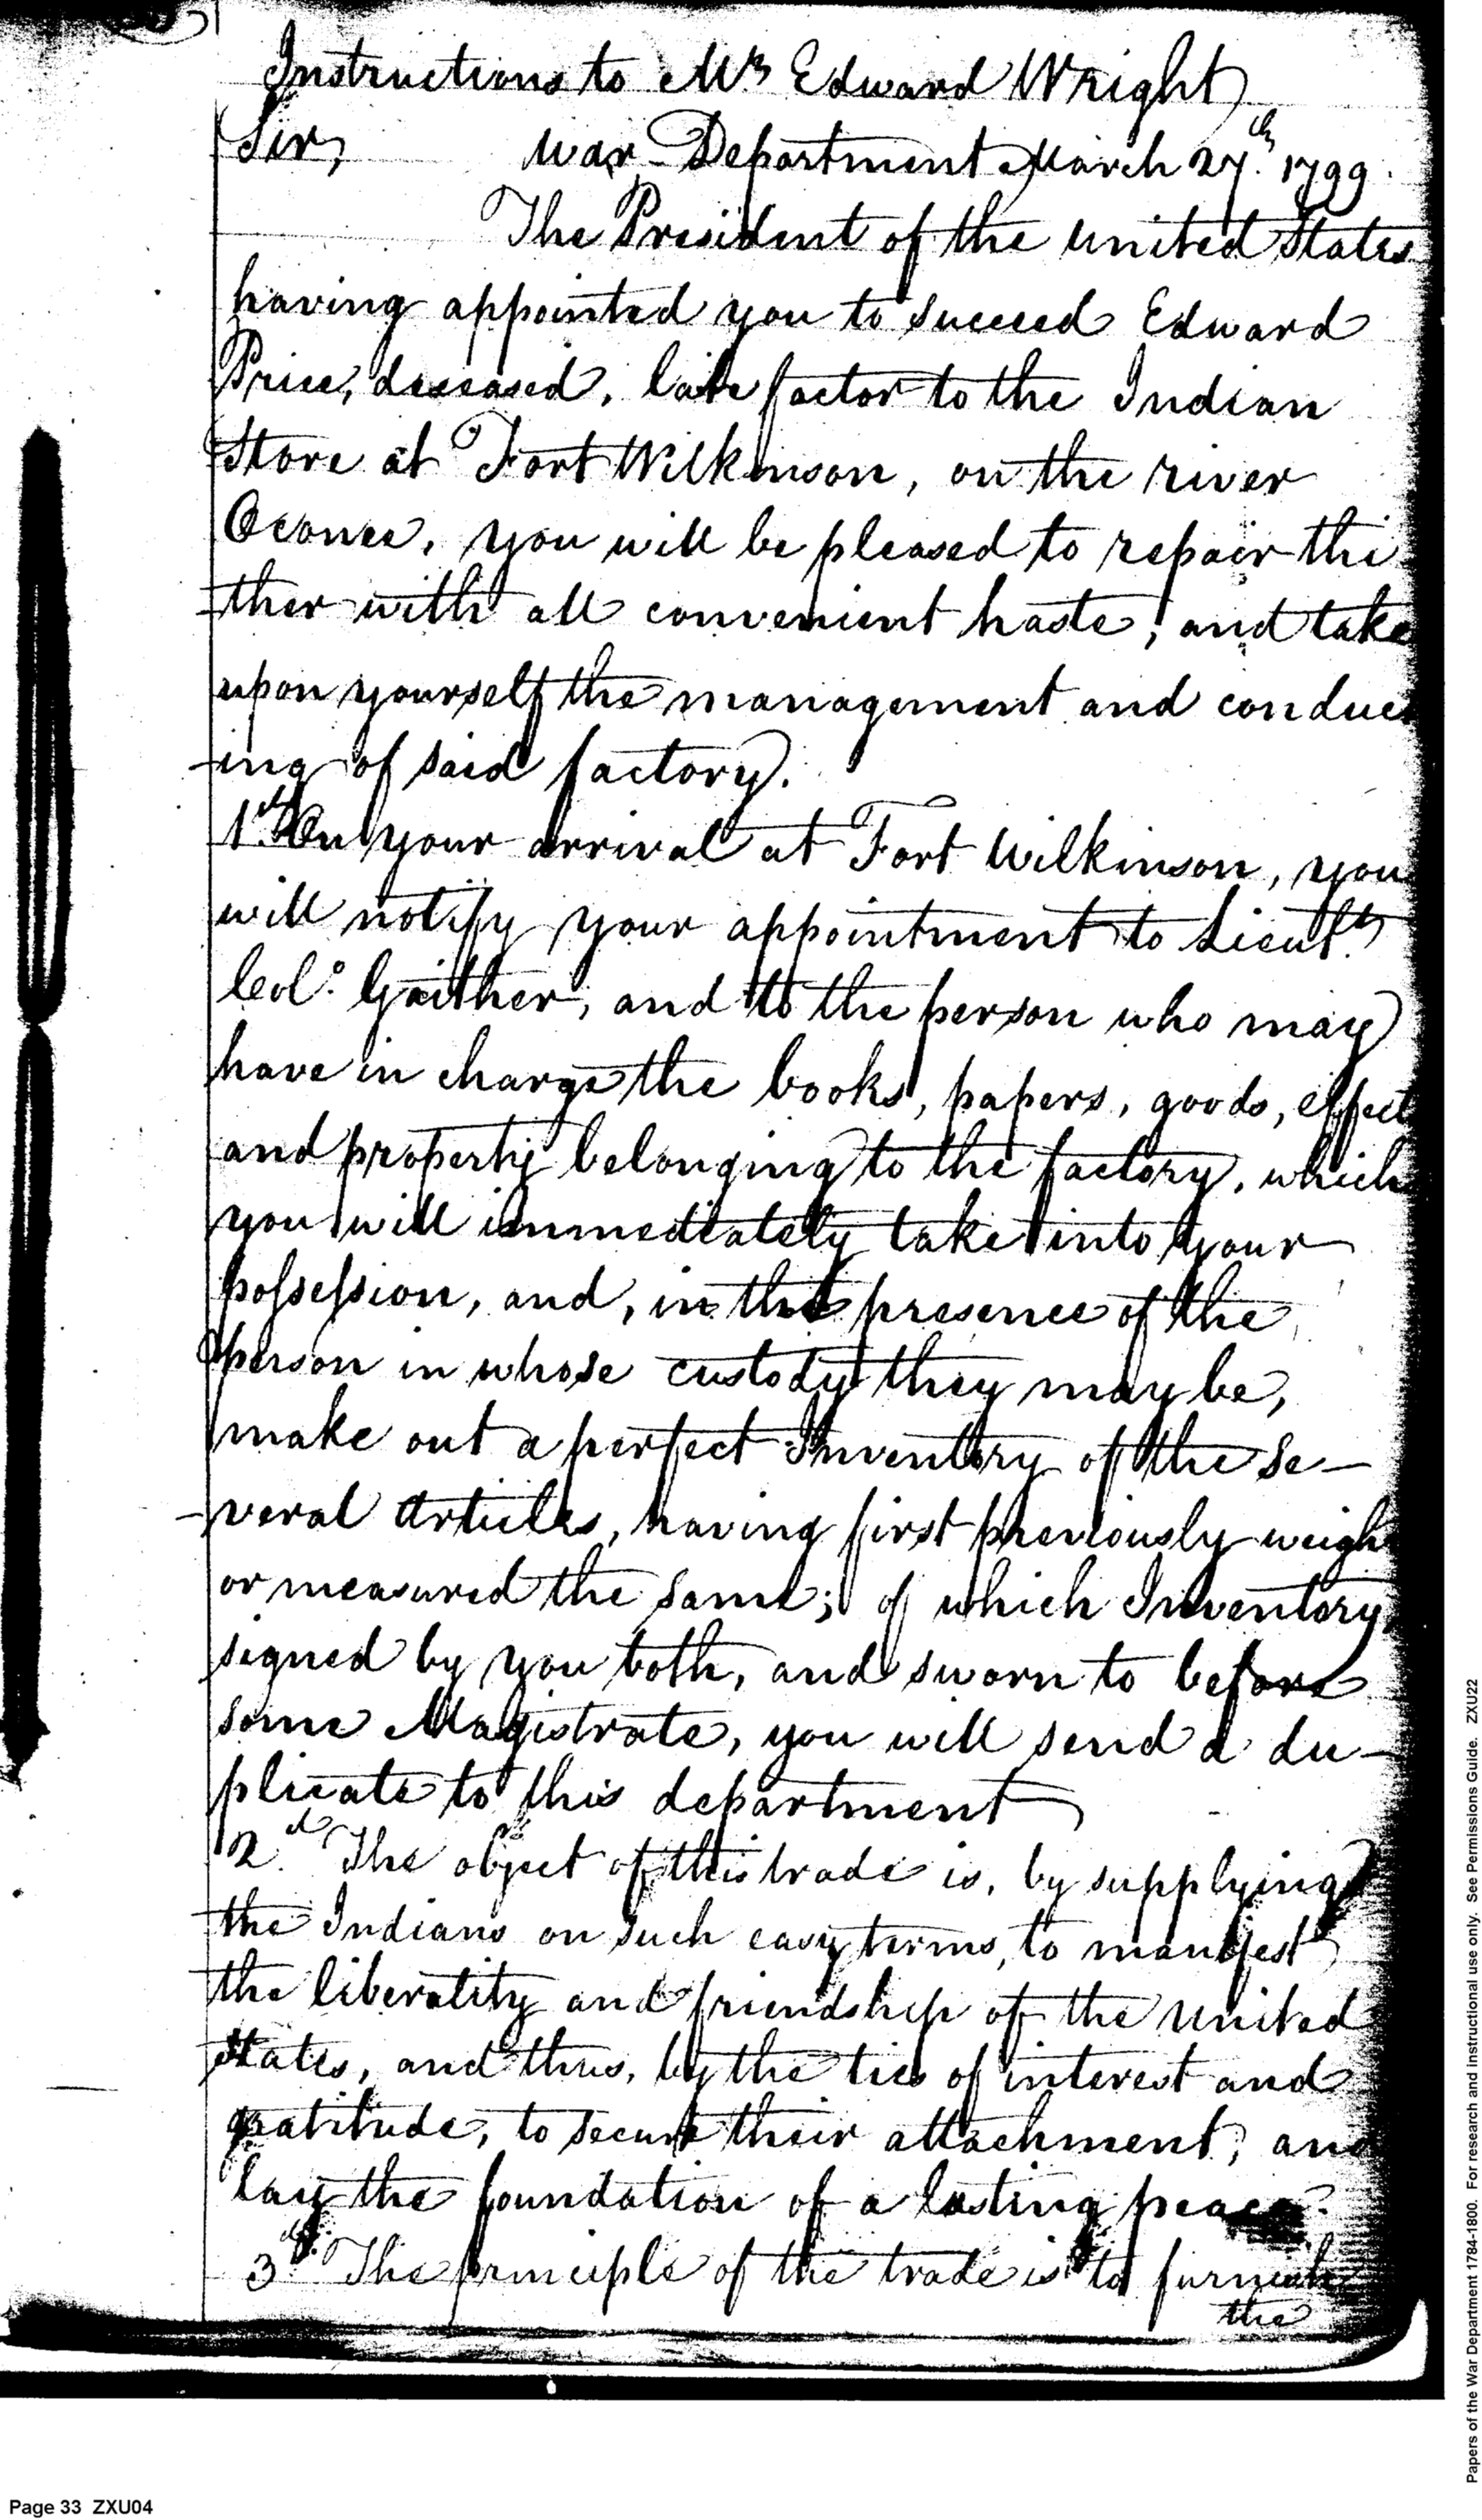 Instructions to Mr Edward Wright
Sir, War Department March 27.th 1799.
The President of the United States
having appointed you to succeed Edward
Price, deseased, late factor to the Indian
Store at Fort Wilkinson, on the river
Oconee, you will be pleased to repair thi
ther with all convenient haste, and take
upon yourself the management and conduct
ing of said factory.
1.st On your arrival at Fort Wilkinson, you
will notify your appointment to Lieut.t
Col.o Gaither, and to the person who may
have in charge the books, papers, goods, effect
and property belonging to the factory, which
you will immediately take into your
possession, and, in the presence of the
person in whose custody they may be,
make out a perfect Inventory of the se-
-veral articles, having first previously weigh
or measured the same; of which Inventory
signed by you both, and sworn to before
some Magistrate, you will send a du-
plicate to this department
2.d The object of this trade is, by supplying
the Indians on such easy terms, to manifest
the liberality and friendship of the United
States, and thus, by the ties of interest and
gratitude, to secure their attachment, and
lay the foundation of a lasting peace.
3.d The principle of the trade is to furnish
the
Page 33 ZXU04
Papers of the War Department 1784-1800. For research and instructional use only. See Permissions Guide. ZXU22